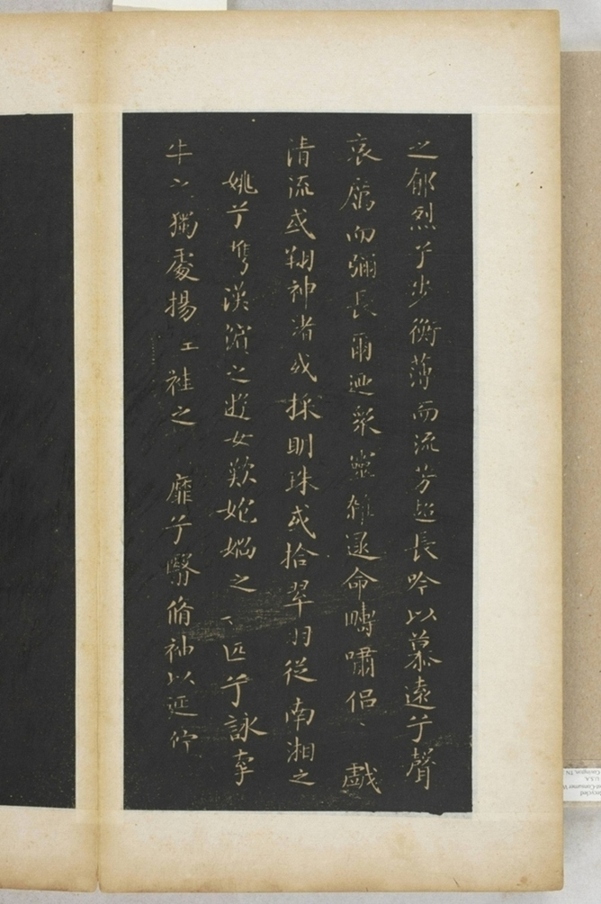 之郁烈兮步衡薄而流芳超長吟以慕遠兮聲
哀厲而彌長爾迺眾靈雜遝命疇嘯侶戲
清流或翔神渚或採明珠或拾翠羽從南湘之
姚兮攜漢濱之遊女歎匏媧之匹兮詠牽
牛之獨處揚袿之靡兮翳脩袖以延佇